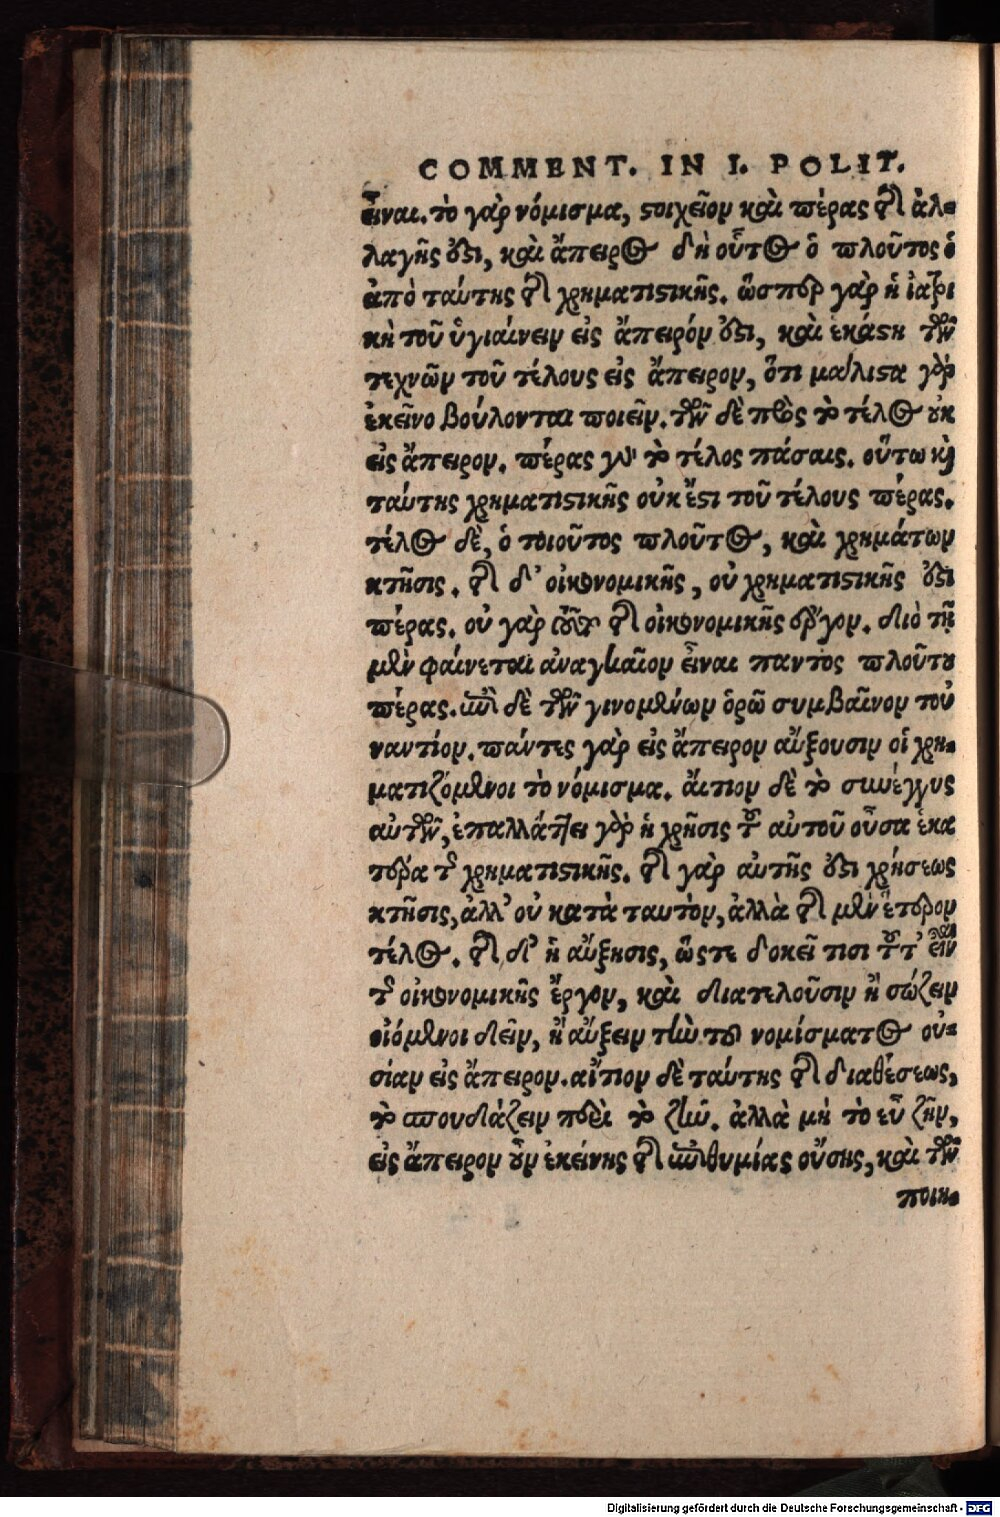 COMMENT. IN I. POLIT.
εἶναι. τὸ γὰρ νόμισμα, ϛοιχεῖον καὶ πέρας τῆς ἀλ-
λαγῆς ὅτι, καὶ ἄπειρος δὴ οὗτος ὁ πλοῦτος ὁ
ἀπὸ ταύτης τῆς χρηματιϛικῆς. ὥσπερ γὰρ ἡ ἰατρι
κὴ τοῦ ὑγιαίνειν εἰς ἄπειρόν ἐϛι, καὶ ἑκάϛη τῶν
τεχνῶν τοῦ τέλους εἰς ἄπειρον, ὅτι μάλιϛα γὰρ
ἐκεῖνο βούλονται ποιεῖν. τῶν δὲ πρὸς τὸ τέλος οὐκ
εἰς ἄπειρον. πέρας γὰρ τὸ τέλος πάσαις. οὕτω καὶ
ταύτης χρηματιϛικῆς οὐκ ἔϛι τοῦ τέλους πέρας.
τέλος δὲ, ὁ τοιοῦτος πλοῦτος, καὶ χρημάτων
κτῆσις. τῆς δ' οἰκονομικῆς, οὐ χρηματιϛικῆς ἐϛὶ
πέρας. οὐ γὰρ τοῦτο τῆς οἰκονομικῆς ἔργον. διὸ τῇ
μὲν φαίνεται ἀναγκαῖον εἶναι παντὸς πλούτου
πέρας. ἐπὶ δὲ τῶν γινομένων ὁρῶ συμβαῖνον τοὐ
ναντίον. πάντες γὰρ εἰς ἄπειρον αὔξουσιν οἱ χρη-
ματιζόμενοι τὸ νόμισμα. αἴτιον δὲ τὸ σύνεγγυς
αὐτῶν, ἐπαλλάττει γὰρ ἡ χρῆσις τοῦ αὐτοῦ οὖσα ἑκα
τέρα τῆς χρηματιϛικῆς. τῆς γὰρ αὐτῆς ἐϛι χρήσεως
κτῆσις, ἀλλ' οὐ κατὰ ταυτὸν, ἀλλὰ τῆς μὲν ἕτερον
τέλος. τῆς δ' ἡ αὔξησις, ὥςτε δοκεῖ τισι τοῦτ' εἶναι
τῆς οἰκονομικῆς ἔργον, καὶ διατελοῦσιν ἢ σώζειν
οἰόμενοι δεῖν, ἢ αὔξειν τὴν τοῦ νομίσματος οὐ-
σίαν εἰς ἄπειρον. αἴτιον δὲ ταύτης τῆς διαθέσεως,
τὸ σπουδάζειν περὶ τὸ ζῆν. ἀλλὰ μὴ τὸ εὖ ζῆν,
εἰς ἄπειρον οὖν ἐκείνης τῆς ἐπιθυμίας οὔσης, καὶ τῶν
ποιη-
Digitalisierung gefördert durch die Deutsche Forschungsgemeinschaft - DFG